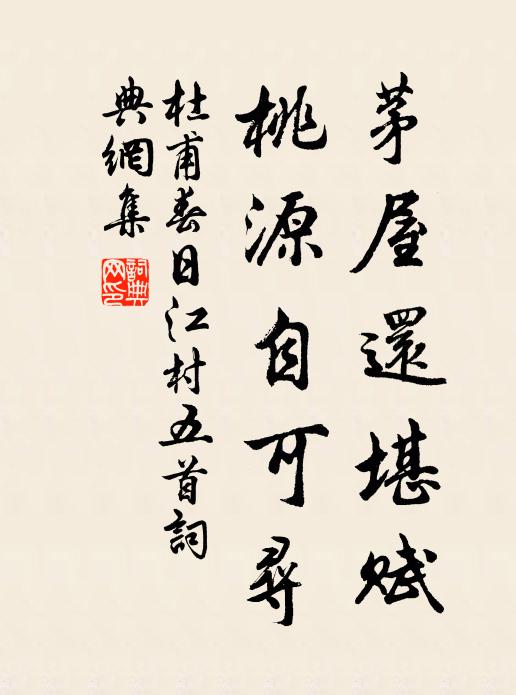 茅屋還堪賦
桃源自可尋
杜甫春日江村五首詞
典網集
詞典
网印